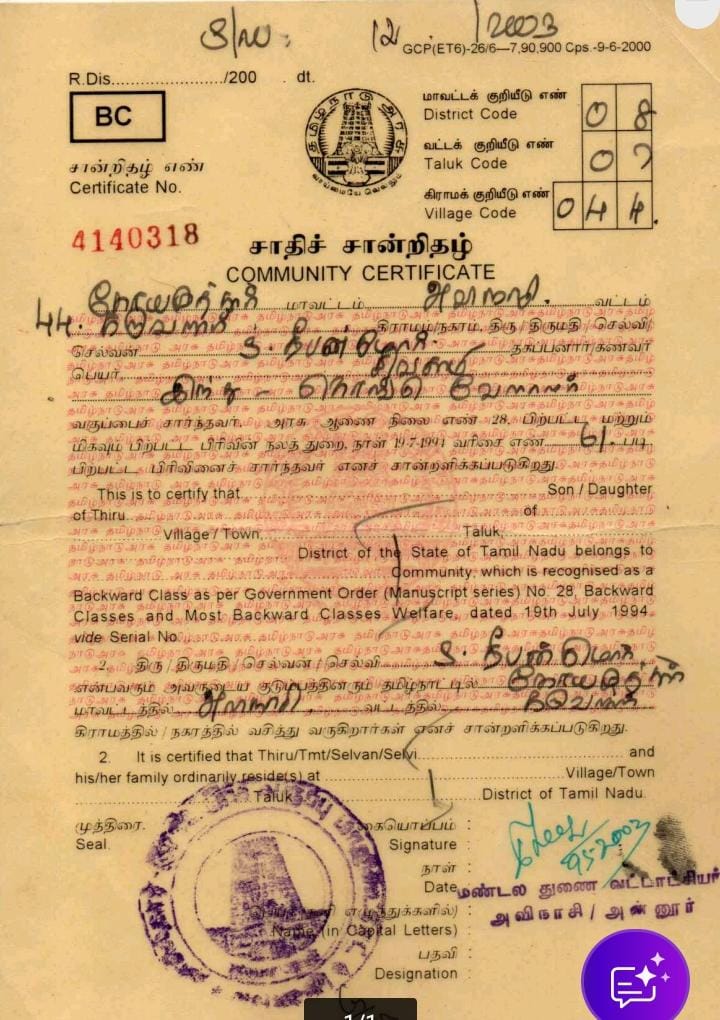 12 /2003
GCP(ET6)-26/6—7,90,900 Cps.-9-6-2000
R.Dis........................../200 . dt.
BC
தமிழ்நாடு அரசு
வாய்மையே வெல்லும்
மாவட்டக் குறியீடு எண்
District Code 08
வட்டக் குறியீடு எண்
Taluk Code 07
கிராமக் குறியீடு எண்
Village Code 044.
சான்றிதழ் எண்
Certificate No.
4140318
சாதிச் சான்றிதழ்
COMMUNITY CERTIFICATE
கோயமுத்தூர் மாவட்டம் அவினாசி வட்டம்
44. கிராமம்/நகரம், திரு/திருமதி/செல்வி/
செல்வன் தகப்பனார்/கணவர்
பெயர்
இந்து - கொங்கு வேளாளர்
வகுப்பைச் சார்ந்தவர். அரசு ஆணை நிலை எண். 28, பிற்பட்ட மற்றும்
மிகவும் பிற்பட்ட பிரிவின் நலத் துறை, நாள் 19-7-1994 வரிசை எண் 61. படி
பிற்பட்ட பிரிவினைச் சார்ந்தவர் எனச் சான்றளிக்கப்படுகிறது.
This is to certify that Son / Daughter
of Thiru of
Village / Town, Taluk,
District of the State of Tamil Nadu belongs to
Community, which is recognised as a
Backward Class as per Government Order (Manuscript series) No. 28, Backward
Classes and Most Backward Classes Welfare, dated 19th July 1994
vide Serial No.
2. திரு/திருமதி/செல்வன்/செல்வி
என்பவரும் அவருடைய குடும்பத்தினரும் தமிழ்நாட்டில் கோயமுத்தூர்
மாவட்டத்தில் அவினாசி வட்டத்தில்
கிராமத்தில் / நகரத்தில் வசித்து வருகிறார்கள் எனச் சான்றளிக்கப்படுகிறது.
2. It is certified that Thiru/Tmt/Selvan/Selvi and
his/her family ordinarily reside(s) at Village/Town
Taluk District of Tamil Nadu.
முத்திரை.
Seal.
கையொப்பம் :
Signature :
9.5.2003
நாள் :
Date
மண்டல துணை வட்டாட்சியர்
அவிநாசி / அன்னூர்
எழுத்துக்களில்) :
Name (in Capital Letters) :
பதவி :
Designation :
1/1